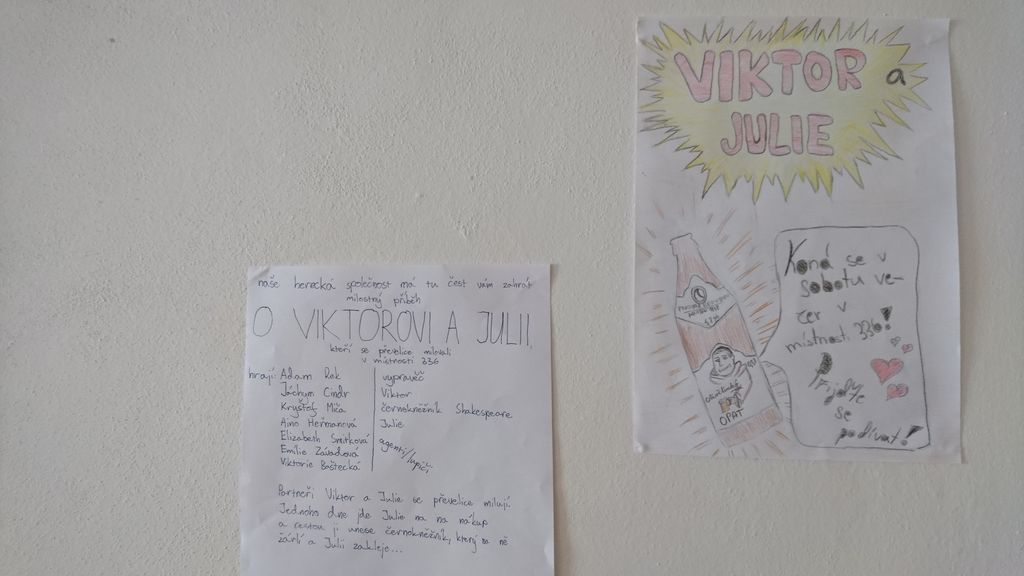 naše herecká společnost má tu čest vám zahrát
milostný příběh
O VIKTOROVI A JULII,
kteří se převelice milovali
v místnosti 336
hrají: Adam Rek vypravěč
Jáchym Cindr Viktor
Kryštof Míča černokněžník Shakespeare
Aino Heřmanová Julie
Elizabeth Smitková agenti/lupiči
Emílie Závadová
Viktorie Baštecká
Partneři Viktor a Julie se převelice milují.
Jednoho dne jde Julie na na nákup
a cestou ji unese černokněžník, který na ně
žárlí a Julii zakleje...
VIKTOR a
JULIE
Koná se v
sobotu ve-
čer v
místnosti 336!
Přijďte
se
podívat!
OPAT